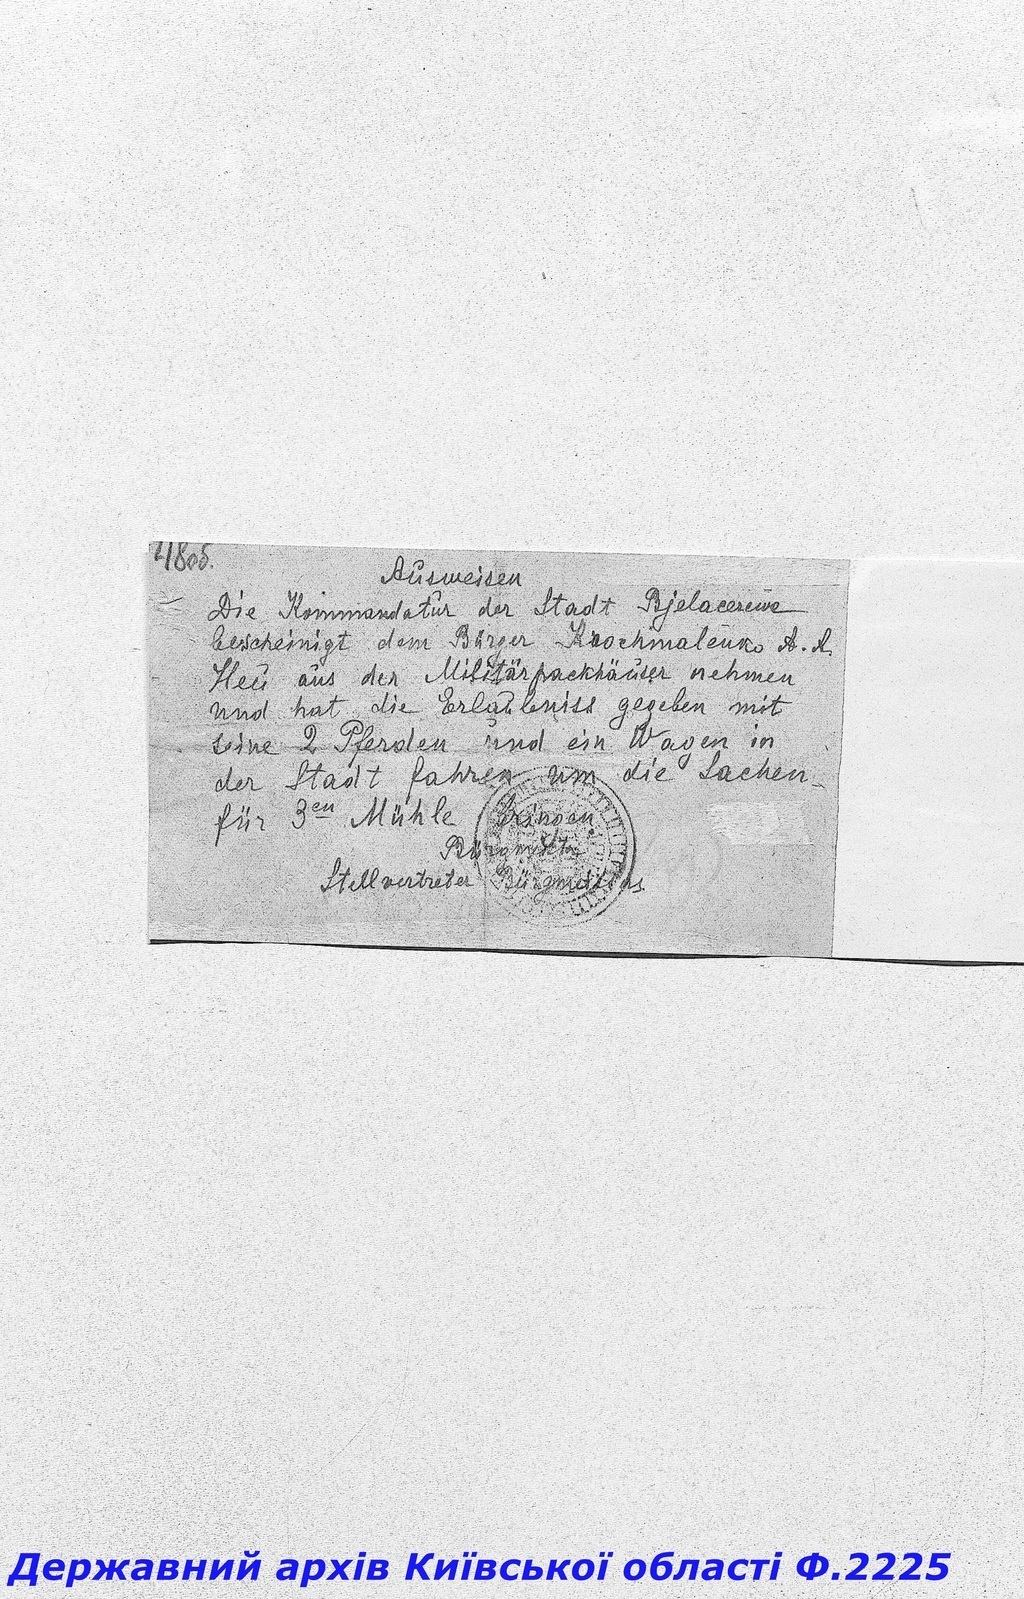 4805.
Ausweisen
Die Kommandatur der Stadt Bjelacerewe
bescheinigt dem Bürger Krochmalenko A. A.
Heu aus der Militärpackhäuser nehmen
und hat die Erlaubniss gegeben mit
seine 2 Pferden und ein Wagen in
der Stadt fahren um die Sachen
für 3en Mühle bringen.
Stellvertreter
Державний архів Київської області Ф.2225